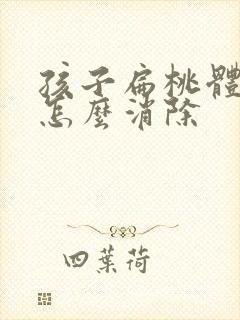 孩子扁桃體
怎麼消除
四葉荷